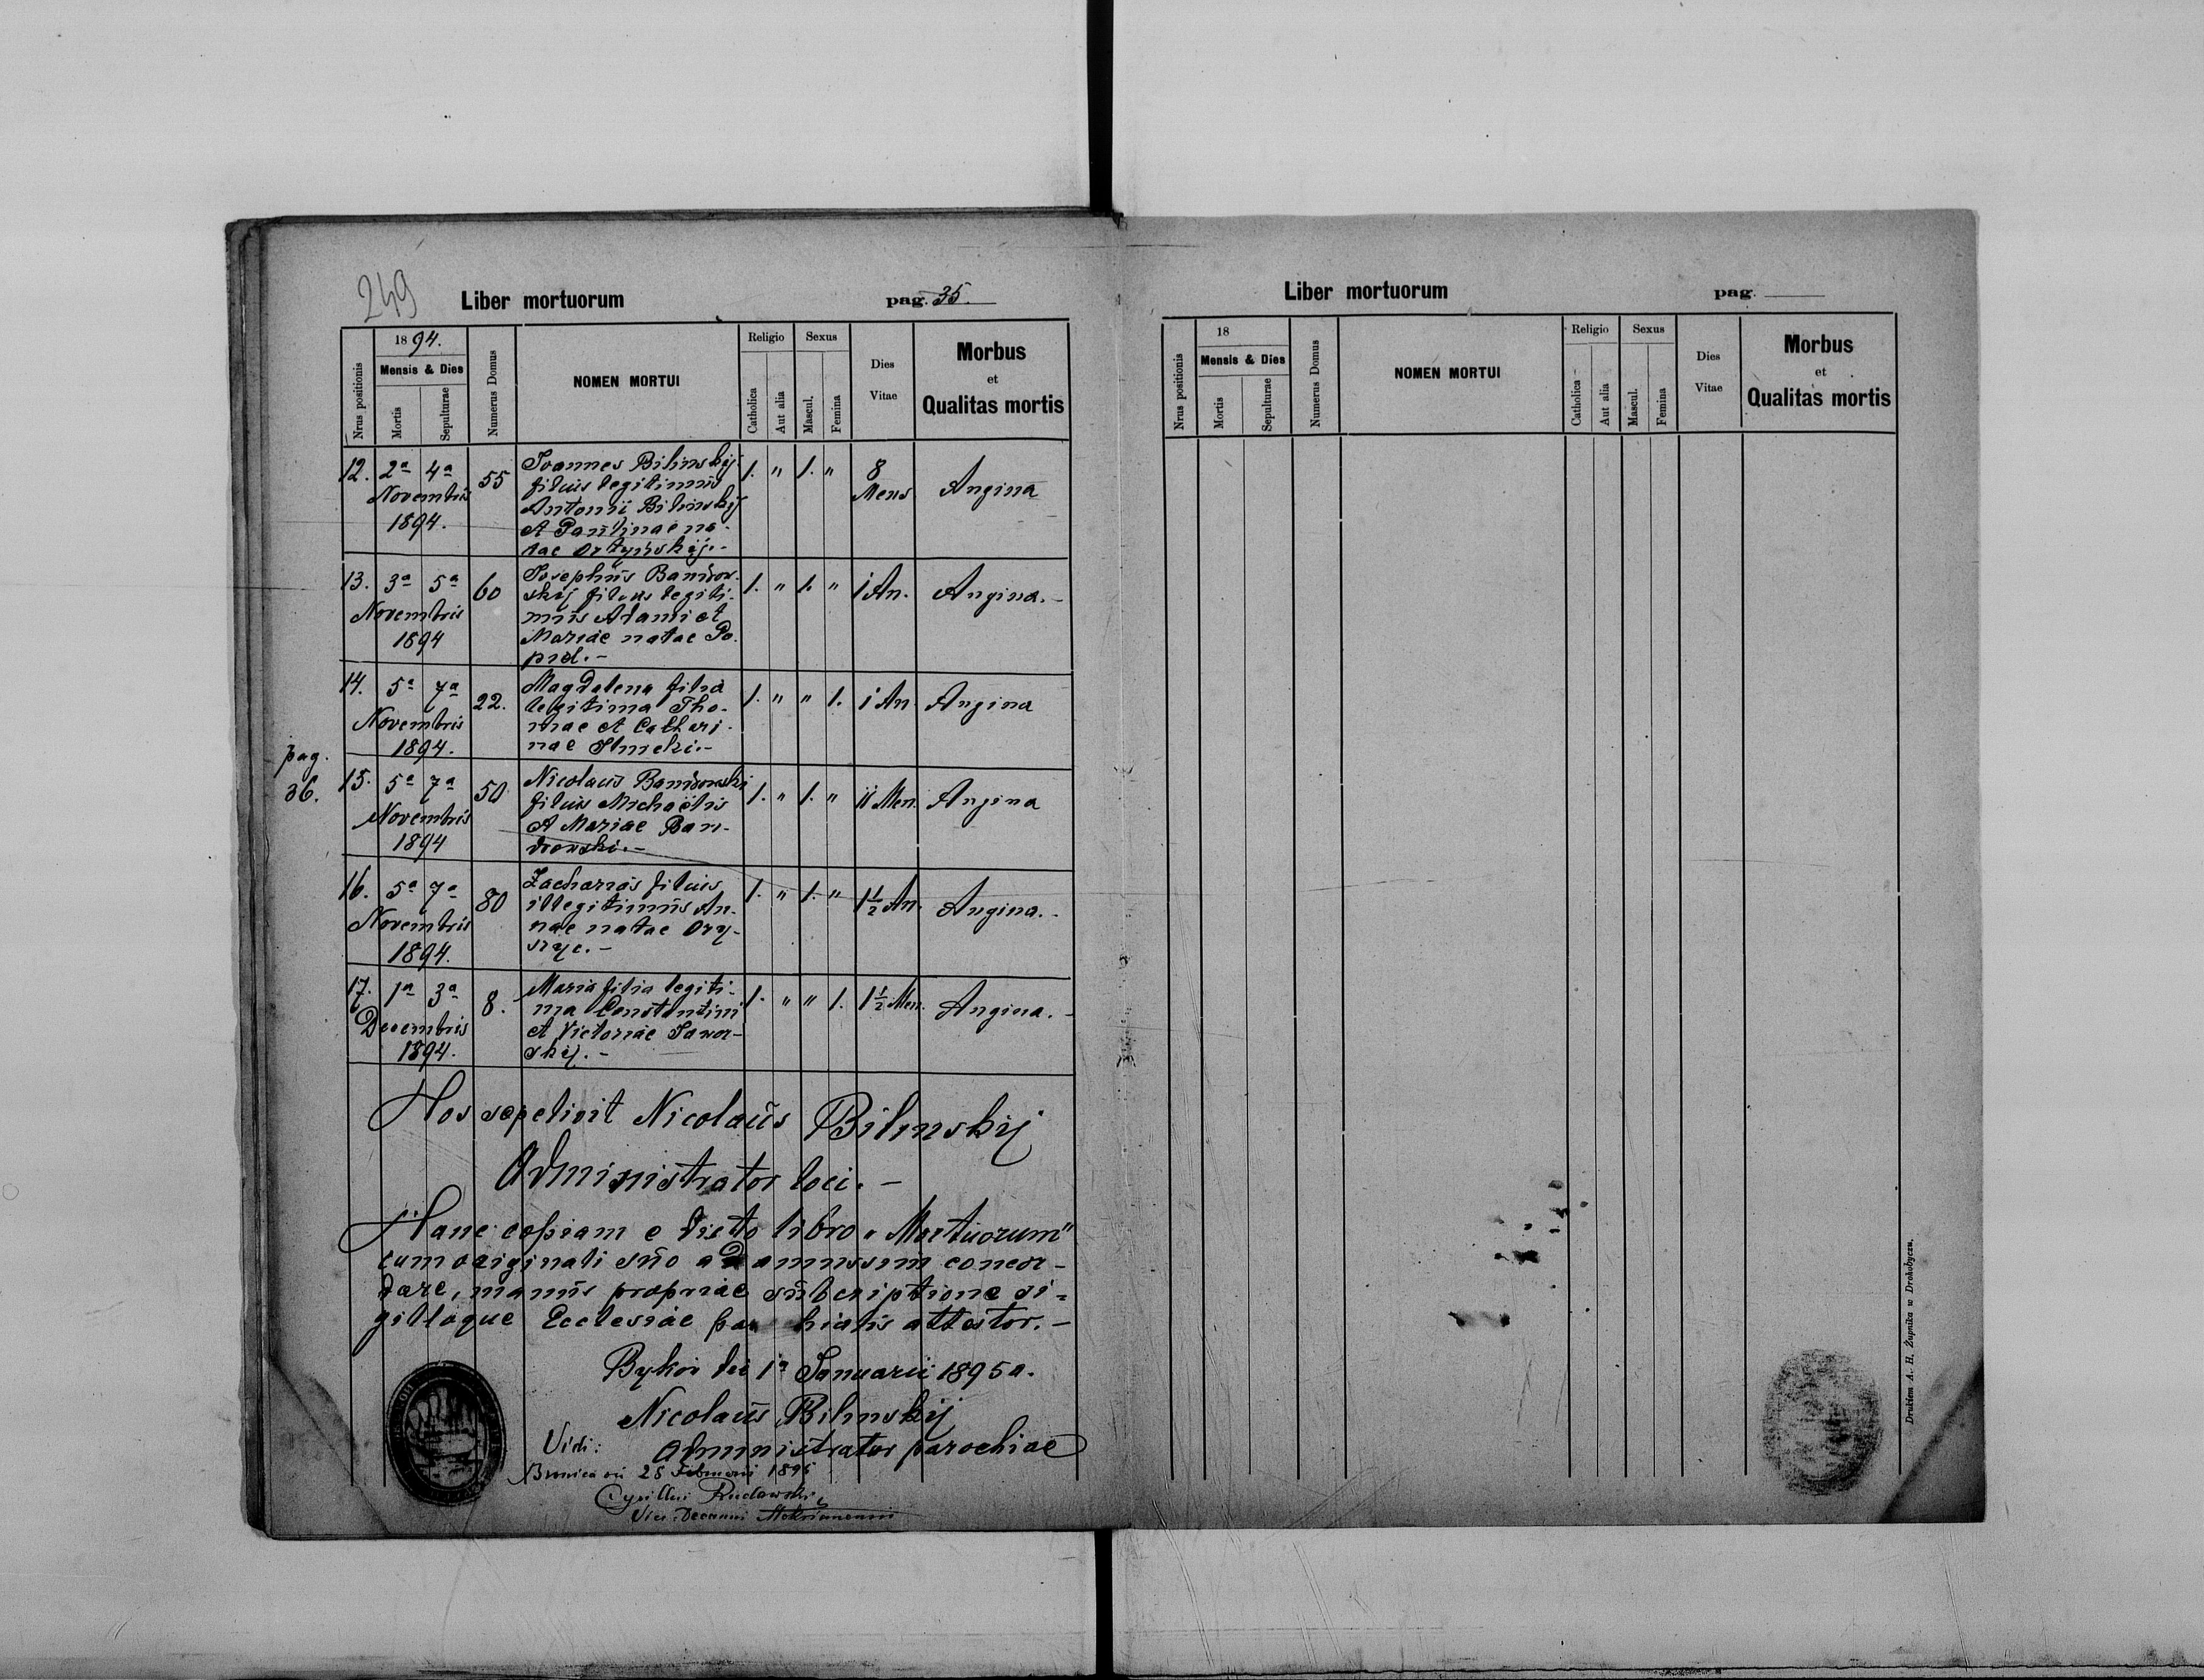 249
Liber mortuorum
pag. 35.
Nrus positionis
1894.
Mensis & Dies
Mortis
Sepulturae
Numerus Domus
NOMEN MORTUI
Religio
Catholica
Aut alia
Sexus
Mascul.
Femina
Dies
Vitae
Morbus
et
Qualitas mortis
12. 2a 4a Novembris 1894. 55
Joannes Bilinskij
filius legitimus
Antonii Bilinskij
et Paulinae na-
tae Ortyńskij.-
1. " 1. " 8 Mens Angina
13. 3a 5a Novembris 1894 60
Josephus Bandrow-
skij filius legiti-
mus Adami et
Mariae natae Po-
pid.-
1. " 1. " 1 An. Angina.-
14. 5a 7a Novembris 1894. 22.
Magdalena filia
legitima Tho-
mae et Cathari-
nae
1. " " 1. 1 An Angina
pag.
36.
15. 5a 7a Novembris 1894 50
Nicolaus Bandrowski
filius Michaëlis
et Mariae Ban-
drowski.-
1. " 1. " 11 Men. Angina
16. 5a 7a Novembris 1894. 80
Zacharias filius
illegitimus An-
nae natae Ory-
szyc.-
1. " 1. " 1 1/2 An. Angina.-
17. 1a 3a Decembris 1894. 8.
Maria filia legiti-
ma Constantini
et Victoriae Jawor-
skij.-
1. " " 1. 1 1/2 Men. Angina.-
Hos sepelivit Nicolaus Bilinskij
Administrator loci.-
Hanc copiam e dicto libro „Mortuorum"
cum originali suo ad amussim concor-
dare, manus propriae subscriptione si-
gilloque Ecclesiae parochialis attestor.-
Bykow die 1a Januarii 1895 a.
Nicolaus Bilinskij
Administrator parochiae
Vidi:
Bronica 28 Februarii 1895
Cyrillus Rudawski
Vice-Decanus
Liber mortuorum
pag.
Nrus positionis
18
Mensis & Dies
Mortis
Sepulturae
Numerus Domus
NOMEN MORTUI
Religio
Catholica
Aut alia
Sexus
Mascul.
Femina
Dies
Vitae
Morbus
et
Qualitas mortis
Drukiem A. H. Żupnika w Drohobyczu.